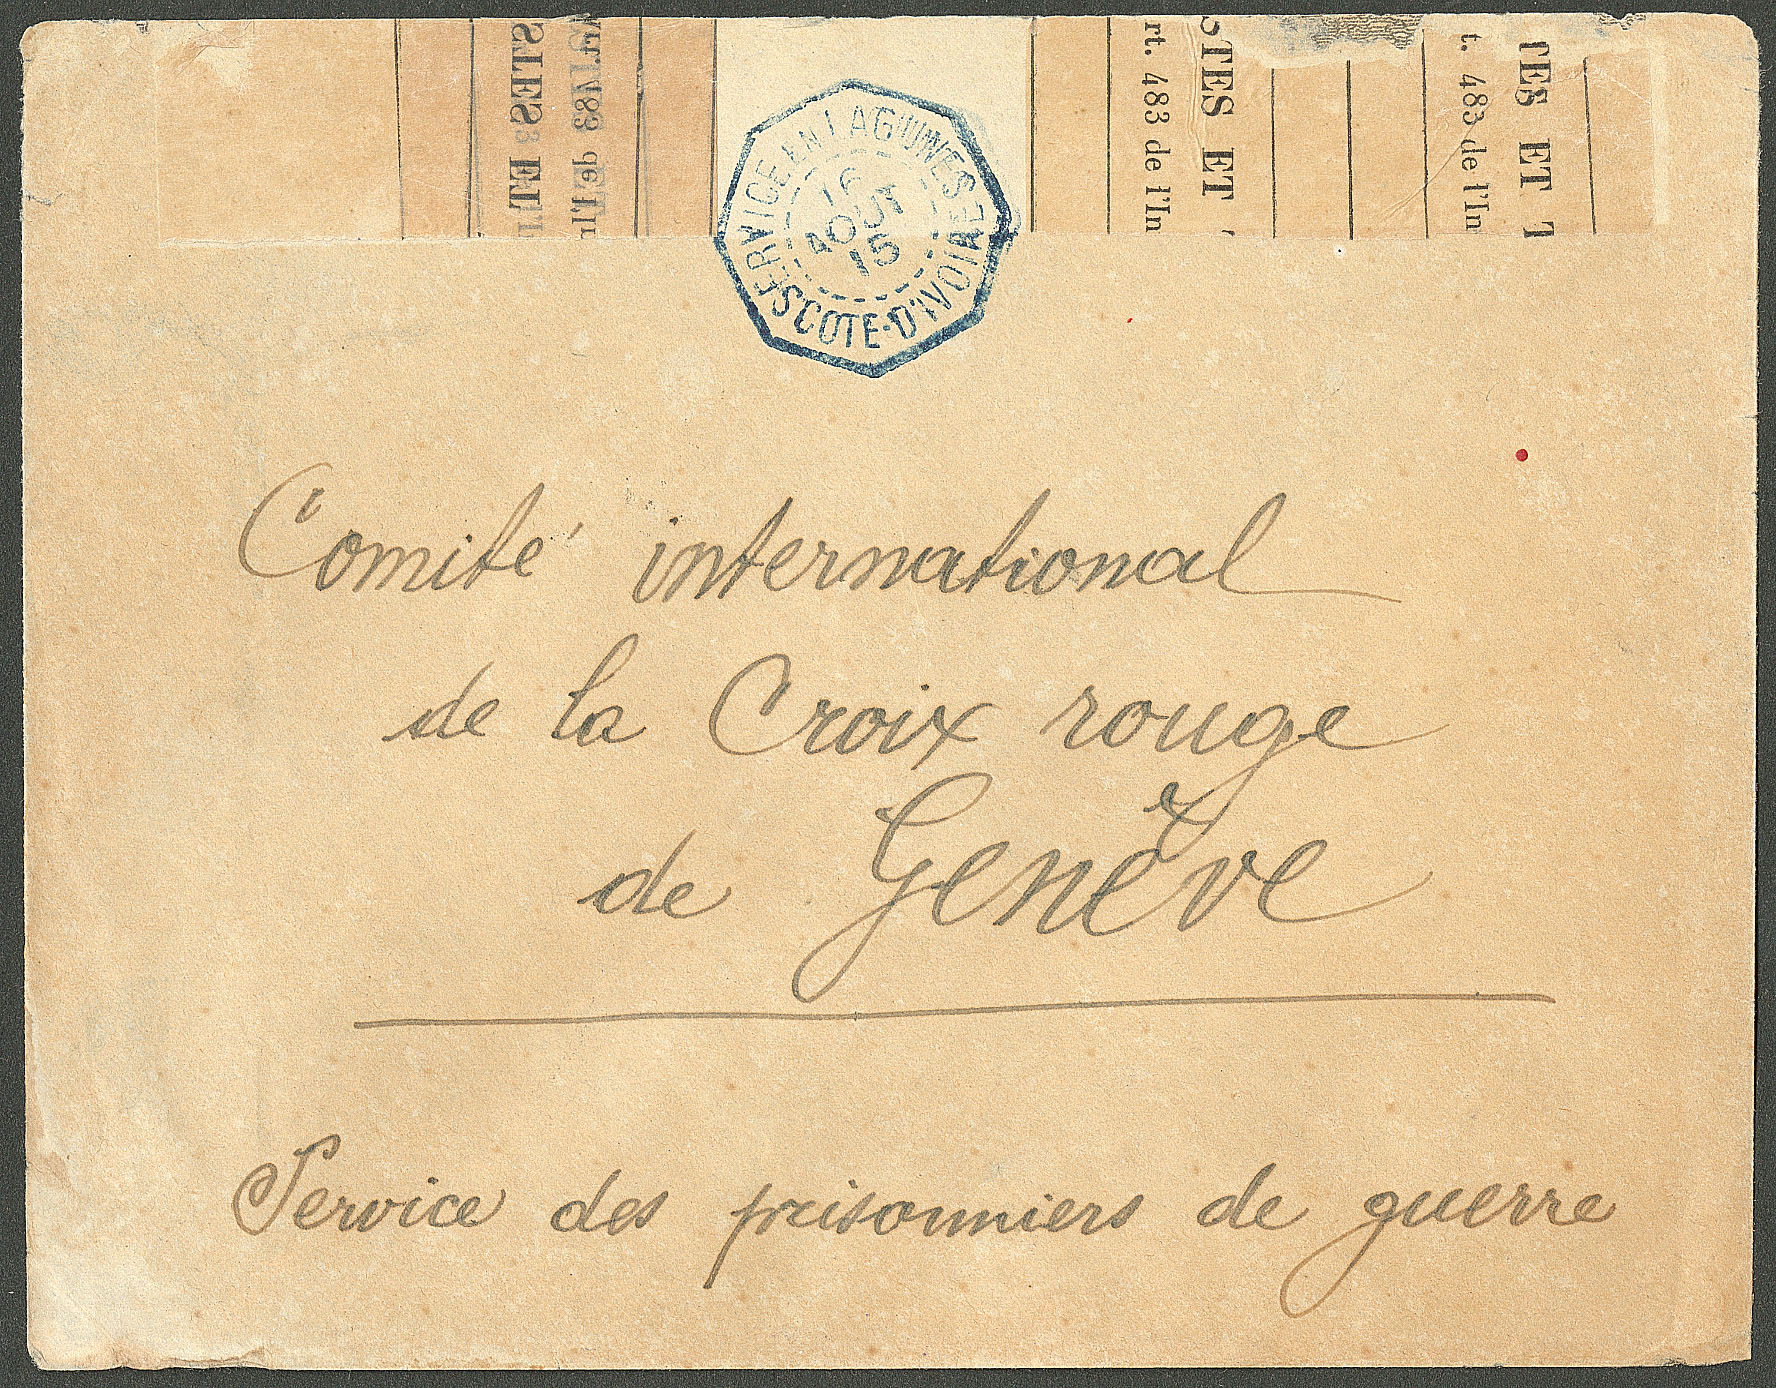 STES ET
Art. 483 de l'In
rt. 483 de l'In
STES ET
t. 483 de l'In
TES ET T
SERVICE EN LAGUNES
16
AOUT
15
COTE-D'IVOIRE
Comité international
de la Croix rouge
de Genève
Service des prisonniers de guerre